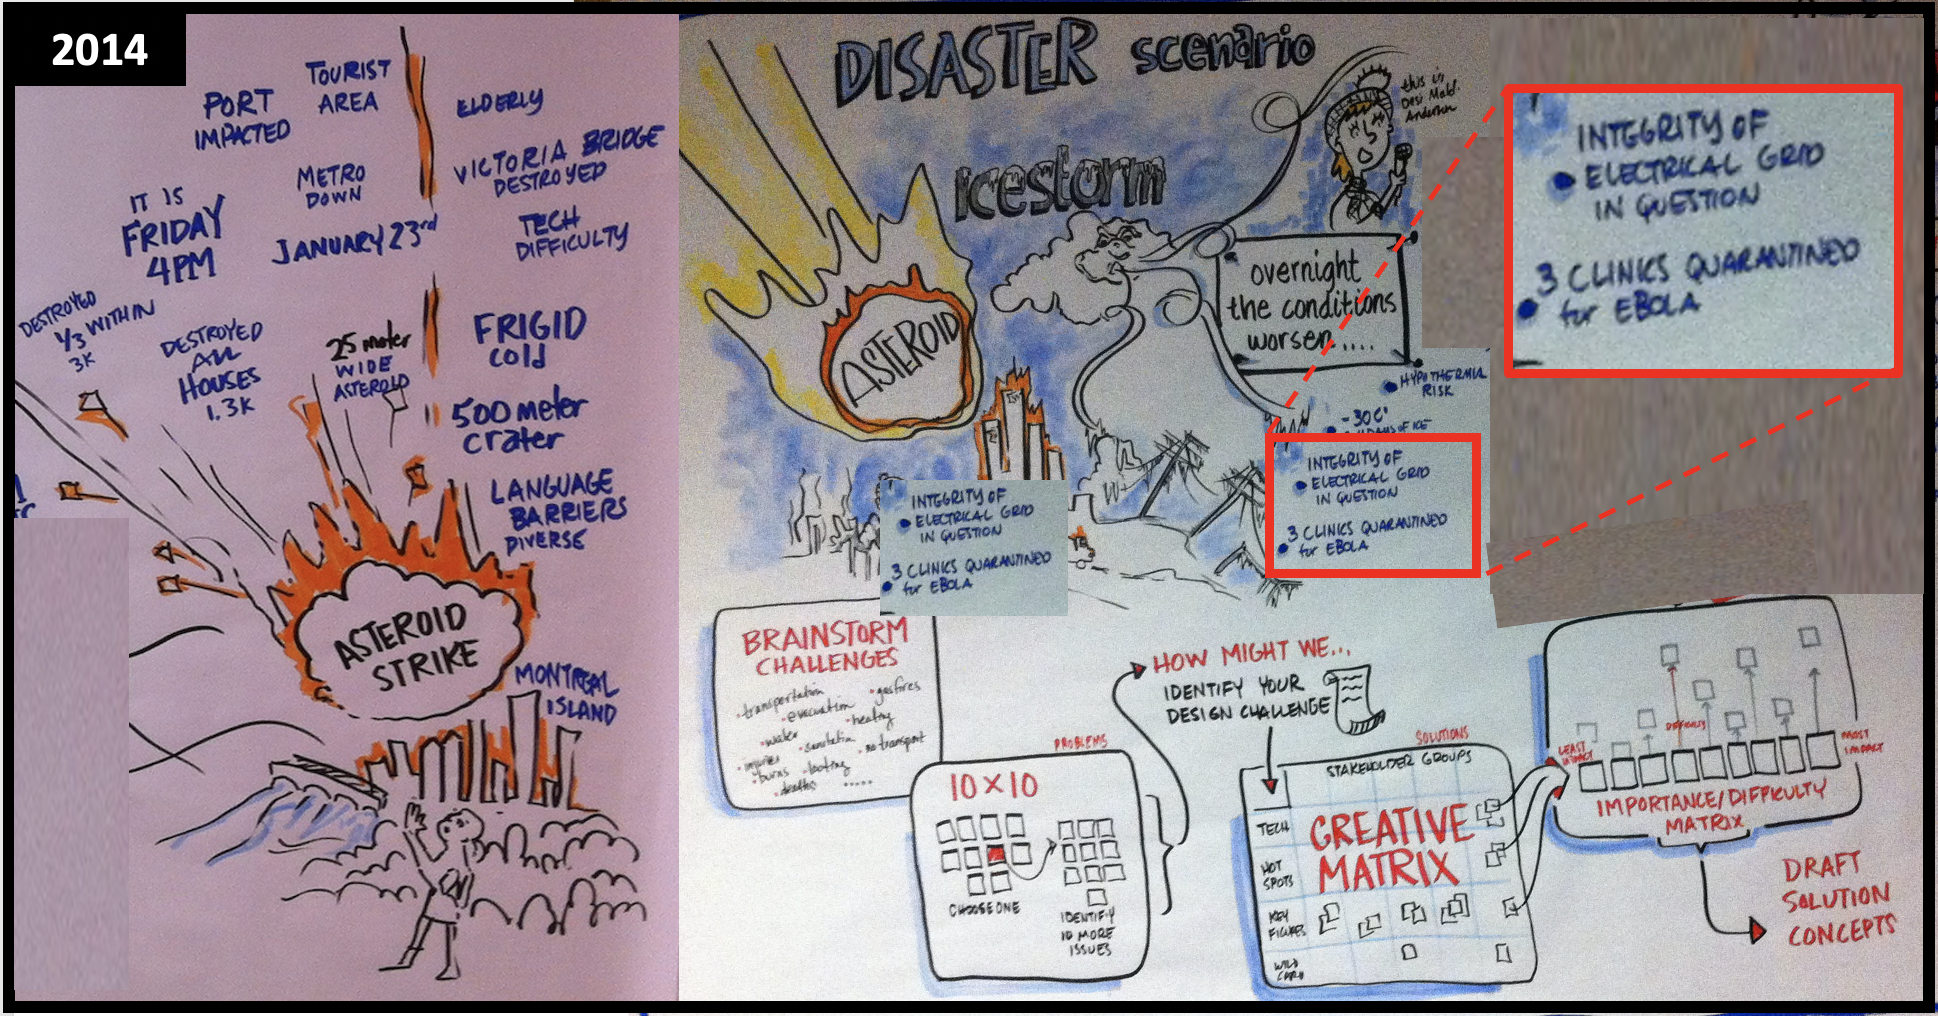 2014
TOURIST
AREA
PORT
IMPACTED
ELDERLY
VICTORIA BRIDGE
DESTROYED
METRO
DOWN
IT IS
FRIDAY
4PM
JANUARY 23rd
TECH
DIFFICULTY
DESTROYED
1/3 WITHIN
3K
DESTROYED
ALL
HOUSES
1.3K
25 meter
WIDE
ASTEROID
FRIGID
cold
500 meter
crater
LANGUAGE
BARRIERS
DIVERSE
ASTEROID
STRIKE
MONTREAL
ISLAND
DISASTER scenario
icestorm
this is
Desi
Anderson
ASTEROID
overnight
the conditions
worsen....
HYPOTHERMIA
RISK
-30C°
DAYS OF ICE
INTEGRITY OF
ELECTRICAL GRID
IN QUESTION
3 CLINICS QUARANTINED
for EBOLA
INTEGRITY OF
ELECTRICAL GRID
IN QUESTION
3 CLINICS QUARANTINED
for EBOLA
INTEGRITY OF
ELECTRICAL GRID
IN QUESTION
3 CLINICS QUARANTINED
for EBOLA
BRAINSTORM
CHALLENGES
• transportation
• gas fires
• evacuation
• heating
• water
• sanitation
• no transport
• injuries
• burns
• looting
• deaths
.....
PROBLEMS
10 x 10
CHOOSE ONE
IDENTIFY
10 MORE
ISSUES
HOW MIGHT WE...
IDENTIFY YOUR
DESIGN CHALLENGE
SOLUTIONS
STAKEHOLDER GROUPS
TECH
HOT
SPOTS
KEY
FIGURES
WILD
CARD
CREATIVE
MATRIX
DIFFICULTY
LEAST
IMPACT
MOST
IMPACT
IMPORTANCE/DIFFICULTY
MATRIX
DRAFT
SOLUTION
CONCEPTS